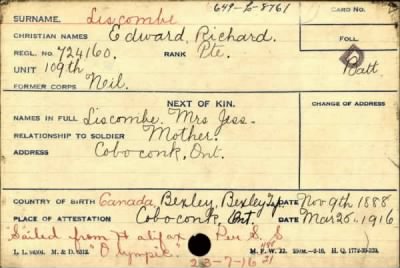 649-L-8761
SURNAME. Liscombe CARD NO.
CHRISTIAN NAMES Edward Richard.
REGL. NO. 724160. RANK Pte. FOLL.
UNIT 109th Batt.
FORMER CORPS Neil.
NEXT OF KIN. CHANGE OF ADDRESS
NAMES IN FULL Liscombe. Mrs Jess.
RELATIONSHIP TO SOLDIER Mother.
ADDRESS Coboconk, Ont.
COUNTRY OF BIRTH Canada, Bexley, Bexley Twp DATE Nov 9th 1888
PLACE OF ATTESTATION Coboconk, Ont. DATE Mar 25, 1916
Sailed from Halifax Per S.S
"Olympic" 23-7-16